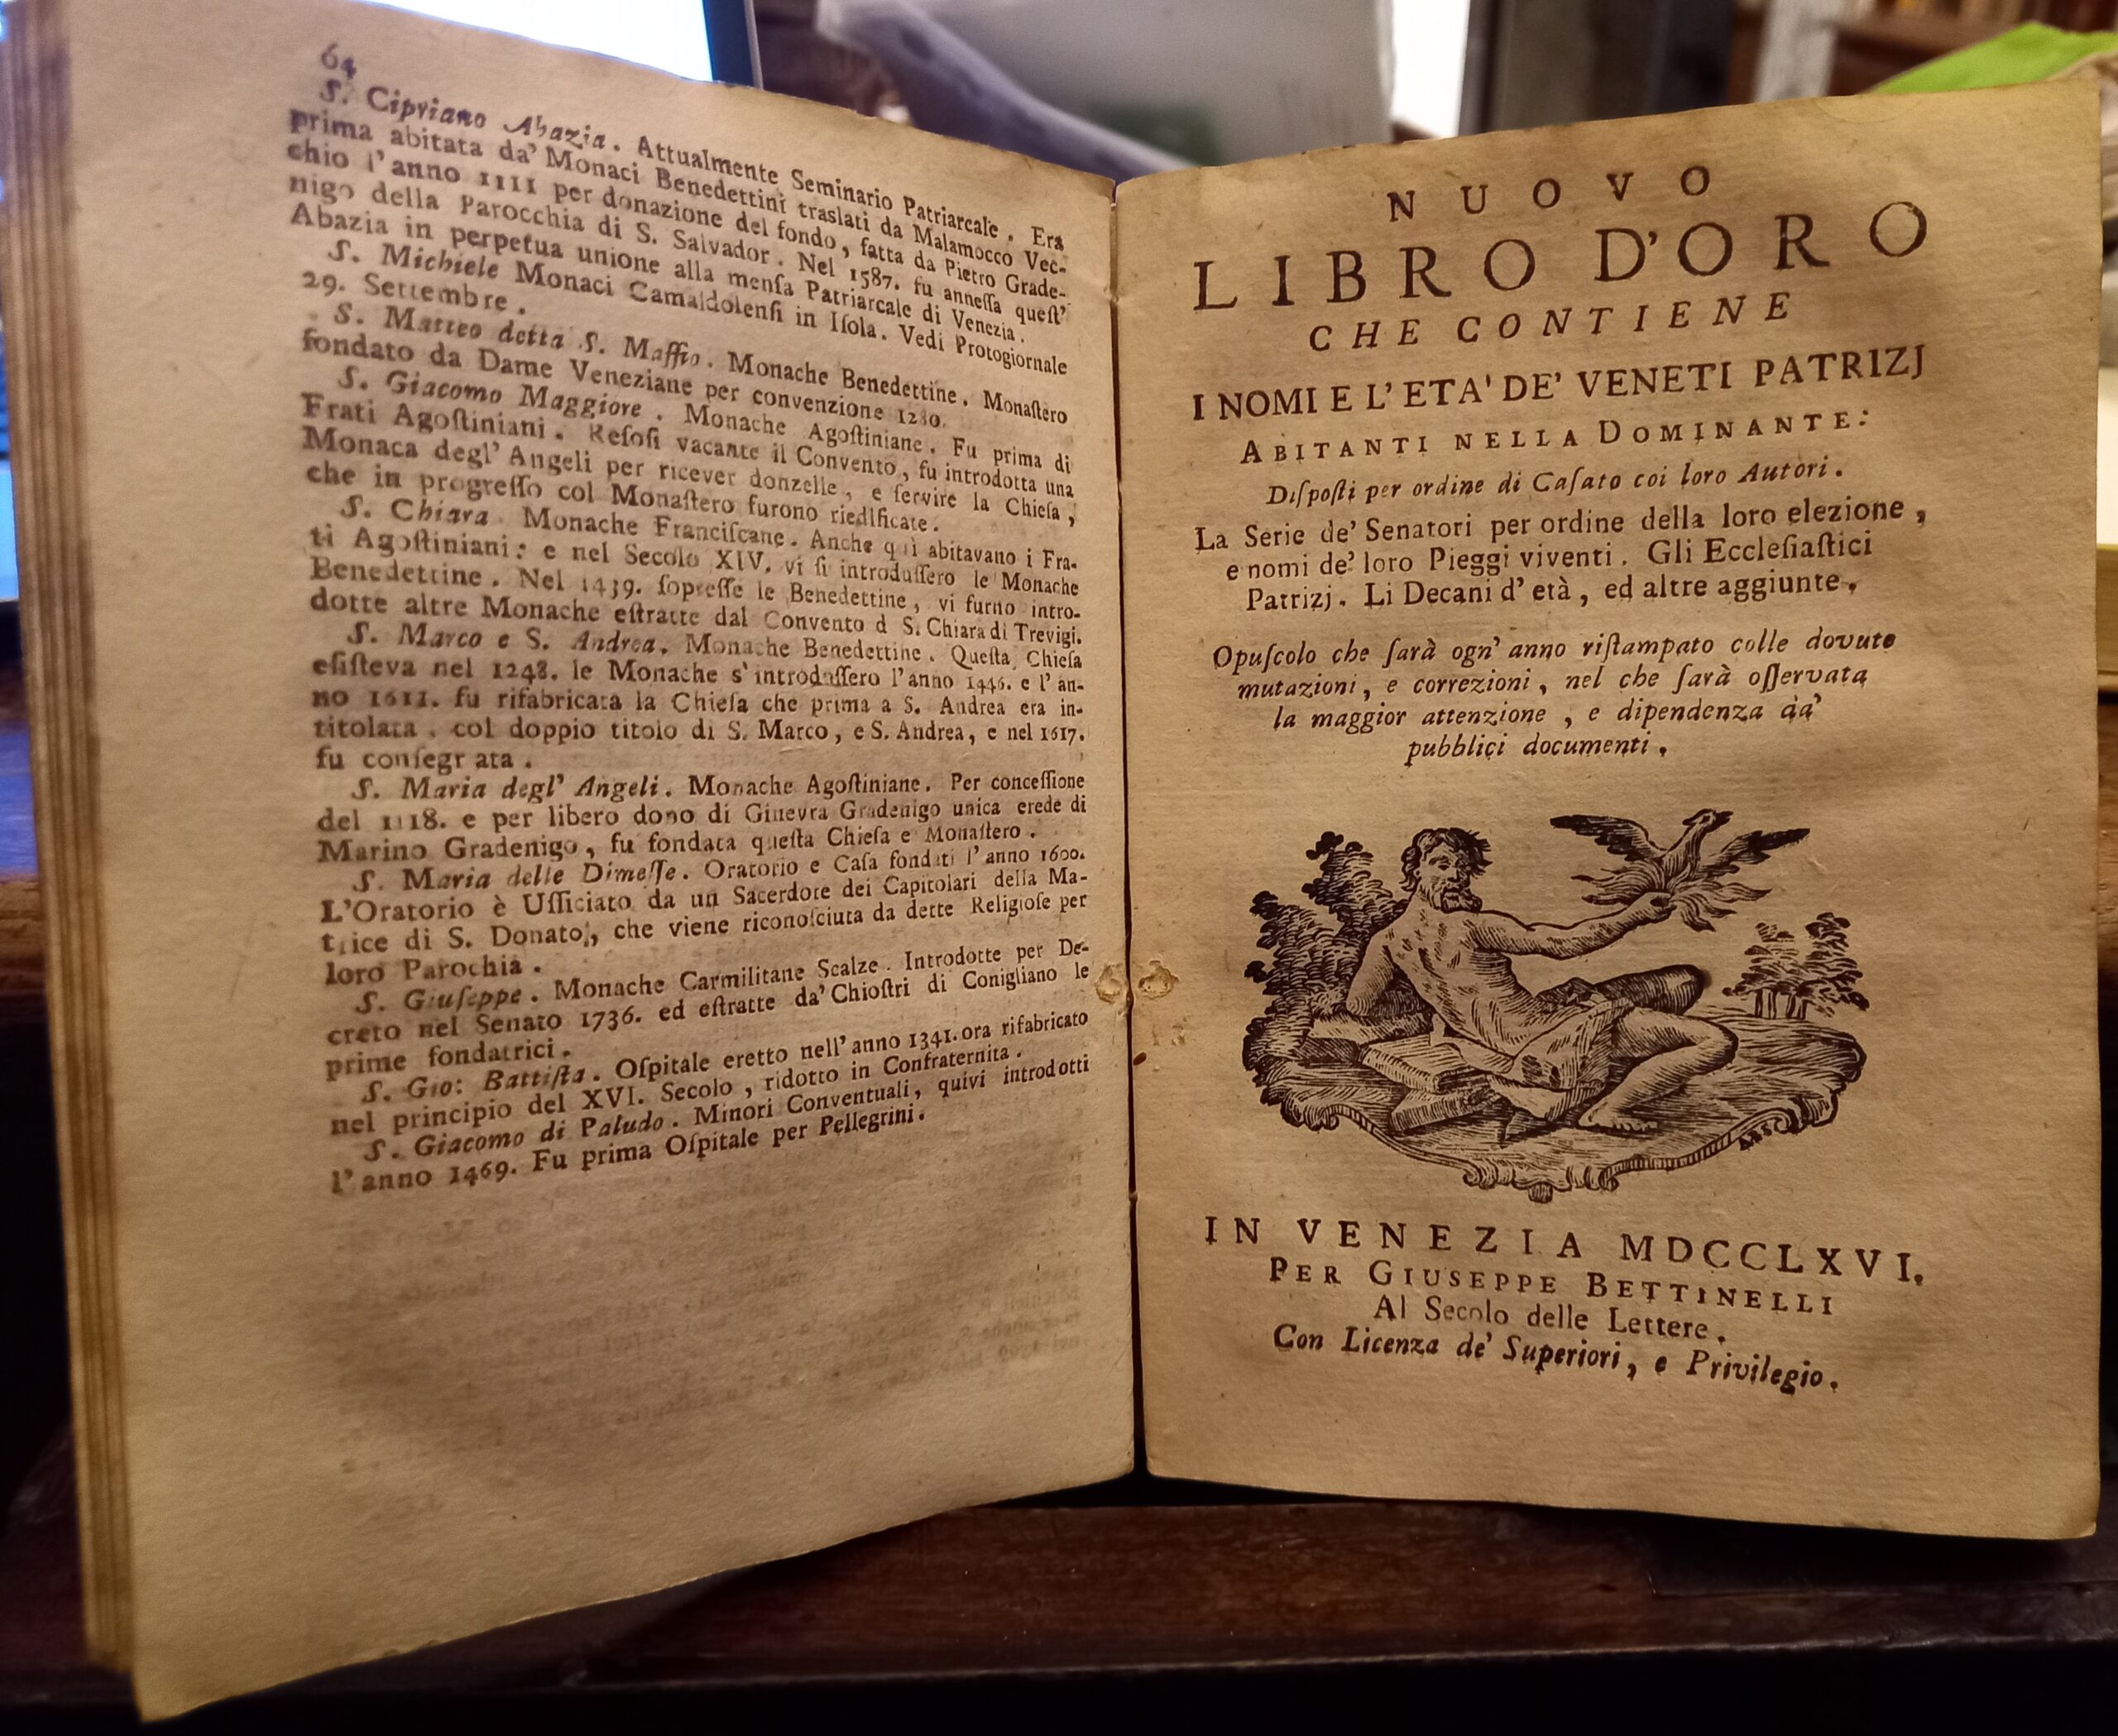 64
S. Cipriano Abazia. Attualmente Seminario Patriarcale. Era
prima abitata da' Monaci Benedettini traslati da Malamocco Vec-
chio l'anno 1111 per donazione del fondo, fatta da Pietro Grade-
nigo della Parocchia di S. Salvador. Nel 1587. fu anneſſa queſt'
Abazia in perpetua unione alla menſa Patriarcale di Venezia.
S. Michiele Monaci Camaldolenſi in Iſola. Vedi Protogiornale
29. Settembre.
S. Matteo detta S. Maffio. Monache Benedettine. Monaſtero
fondato da Dame Veneziane per convenzione 1280.
S. Giacomo Maggiore. Monache Agoſtiniane. Fu prima di
Frati Agoſtiniani. Reſoſi vacante il Convento, fu introdotta una
Monaca degl' Angeli per ricever donzelle, e ſervire la Chieſa,
che in progreſſo col Monaſtero furono riedificate.
S. Chiara. Monache Franciſcane. Anche quì abitavano i Fra-
ti Agoſtiniani: e nel Secolo XIV. vi ſi introduſſero le Monache
Benedettine. Nel 1439. ſopreſſe le Benedettine, vi furno intro-
dotte altre Monache eſtratte dal Convento d S. Chiara di Trevigi.
S. Marco e S. Andrea. Monache Benedettine. Queſta Chieſa
eſiſteva nel 1248. le Monache s'introduſſero l'anno 1446. e l'an-
no 1611. fu rifabricata la Chieſa che prima a S. Andrea era in-
titolata, col doppio titolo di S. Marco, e S. Andrea, e nel 1617.
fu conſegrata.
S. Maria degl' Angeli. Monache Agoſtiniane. Per conceſſione
del 1118. e per libero dono di Ginevra Gradenigo unica erede di
Marino Gradenigo, fu fondata queſta Chieſa e Monaſtero.
S. Maria delle Dimeſſe. Oratorio e Caſa fondati l'anno 1600.
L'Oratorio è Ufficiato da un Sacerdote dei Capitolari della Ma-
trice di S. Donato, che viene riconoſciuta da dette Religioſe per
loro Parochia.
S. Giuſeppe. Monache Carmilitane Scalze. Introdotte per De-
creto nel Senato 1736. ed eſtratte da' Chioſtri di Conigliano le
prime fondatrici.
S. Gio: Battiſta. Oſpitale eretto nell'anno 1341. ora rifabricato
nel principio del XVI. Secolo, ridotto in Confraternita.
S. Giacomo di Paludo. Minori Conventuali, quivi introdotti
l'anno 1469. Fu prima Oſpitale per Pellegrini.
NUOVO
LIBRO D'ORO
CHE CONTIENE
I NOMI E L'ETA' DE' VENETI PATRIZJ
ABITANTI NELLA DOMINANTE:
Diſpoſti per ordine di Caſato coi loro Autori.
La Serie de' Senatori per ordine della loro elezione,
e nomi de' loro Pieggi viventi. Gli Eccleſiaſtici
Patrizj. Li Decani d'età, ed altre aggiunte.
Opuſcolo che ſarà ogn' anno riſtampato colle dovute
mutazioni, e correzioni, nel che ſarà oſſervata
la maggior attenzione, e dipendenza da'
pubblici documenti.
IN VENEZIA MDCCLXVI.
PER GIUSEPPE BETTINELLI
Al Secolo delle Lettere.
Con Licenza de' Superiori, e Privilegio.